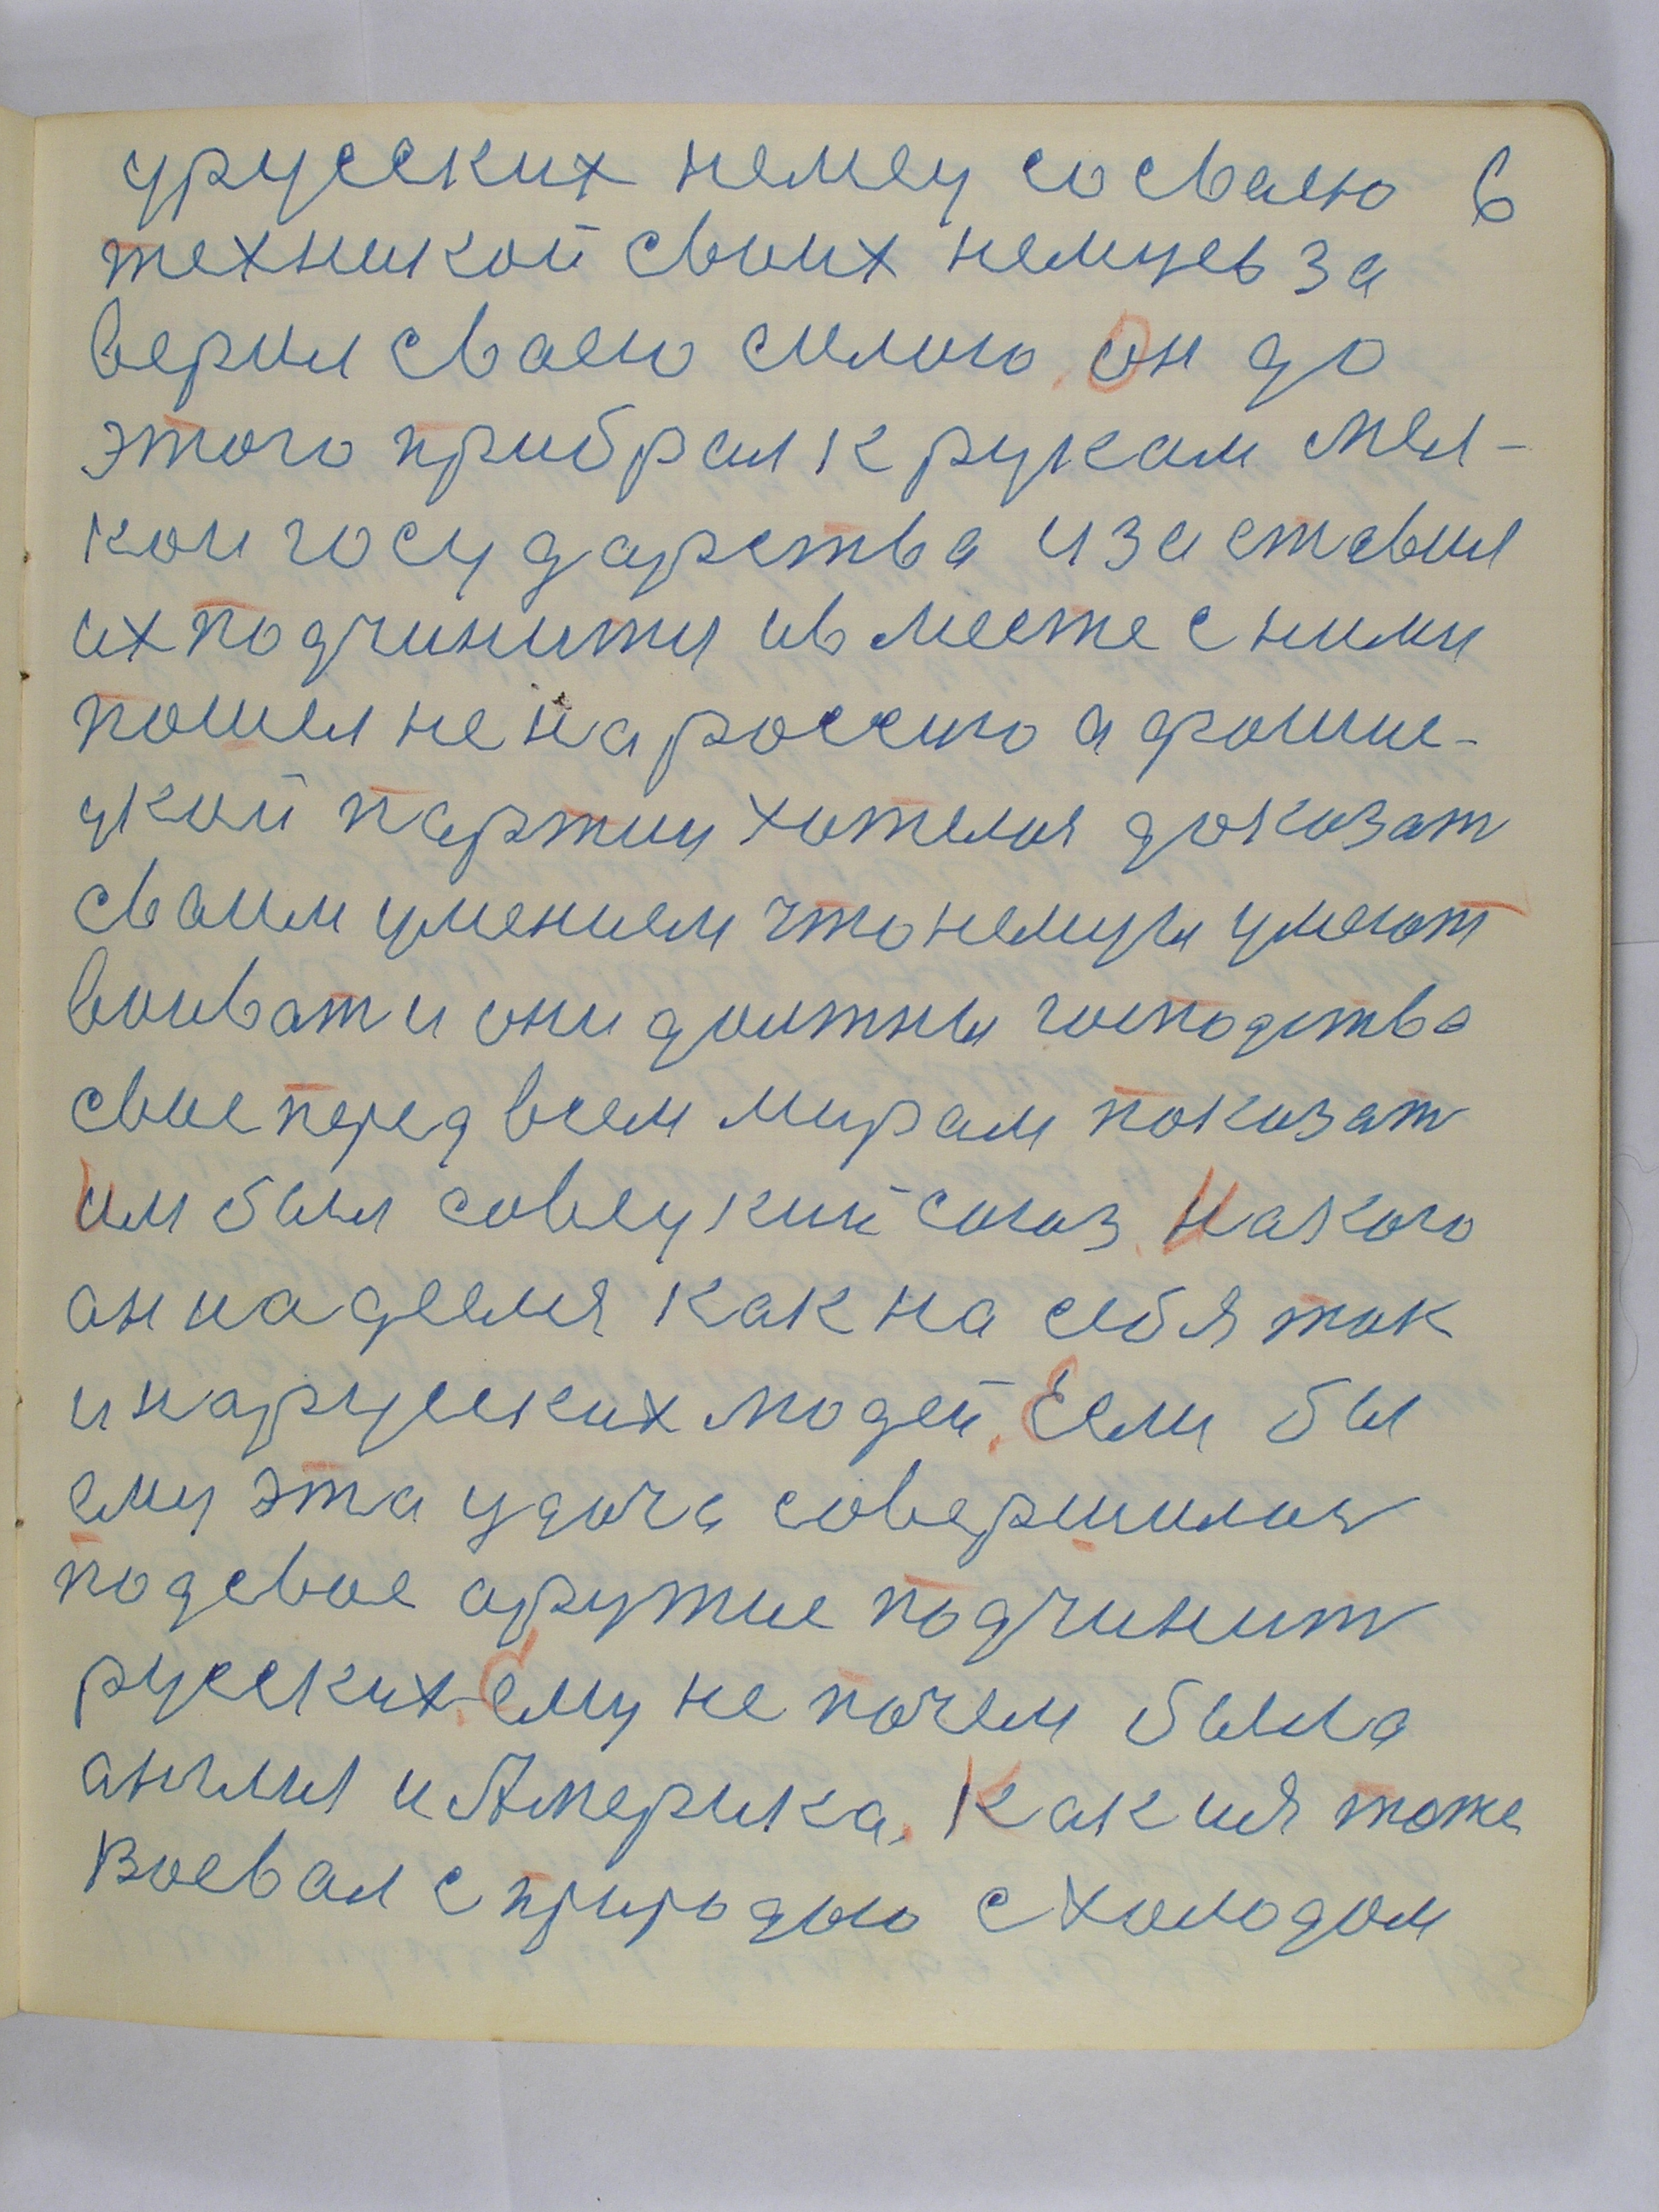 урусских немец сосваею 6
техникой своих немцев за
верил сваею силою. Он до
этого прибрал к рукам мел-
кои государства и заставил
их подчинити ивместе с ними
пошел не на россию а фошис-
цкой партии хотелоя доказат
сваим умением что немцы умеют
воиват и они должны господства
свое перед всем мирам показат
Им был совецкий союз. На кого
он надеелся как на себя так
и на русских людей. Если бы
ему эта удача совершилоя
под свое аружие подчинит
русских. Ему не почем была
англия и Америка. Как ия тоже
Воевал с природою с холодом